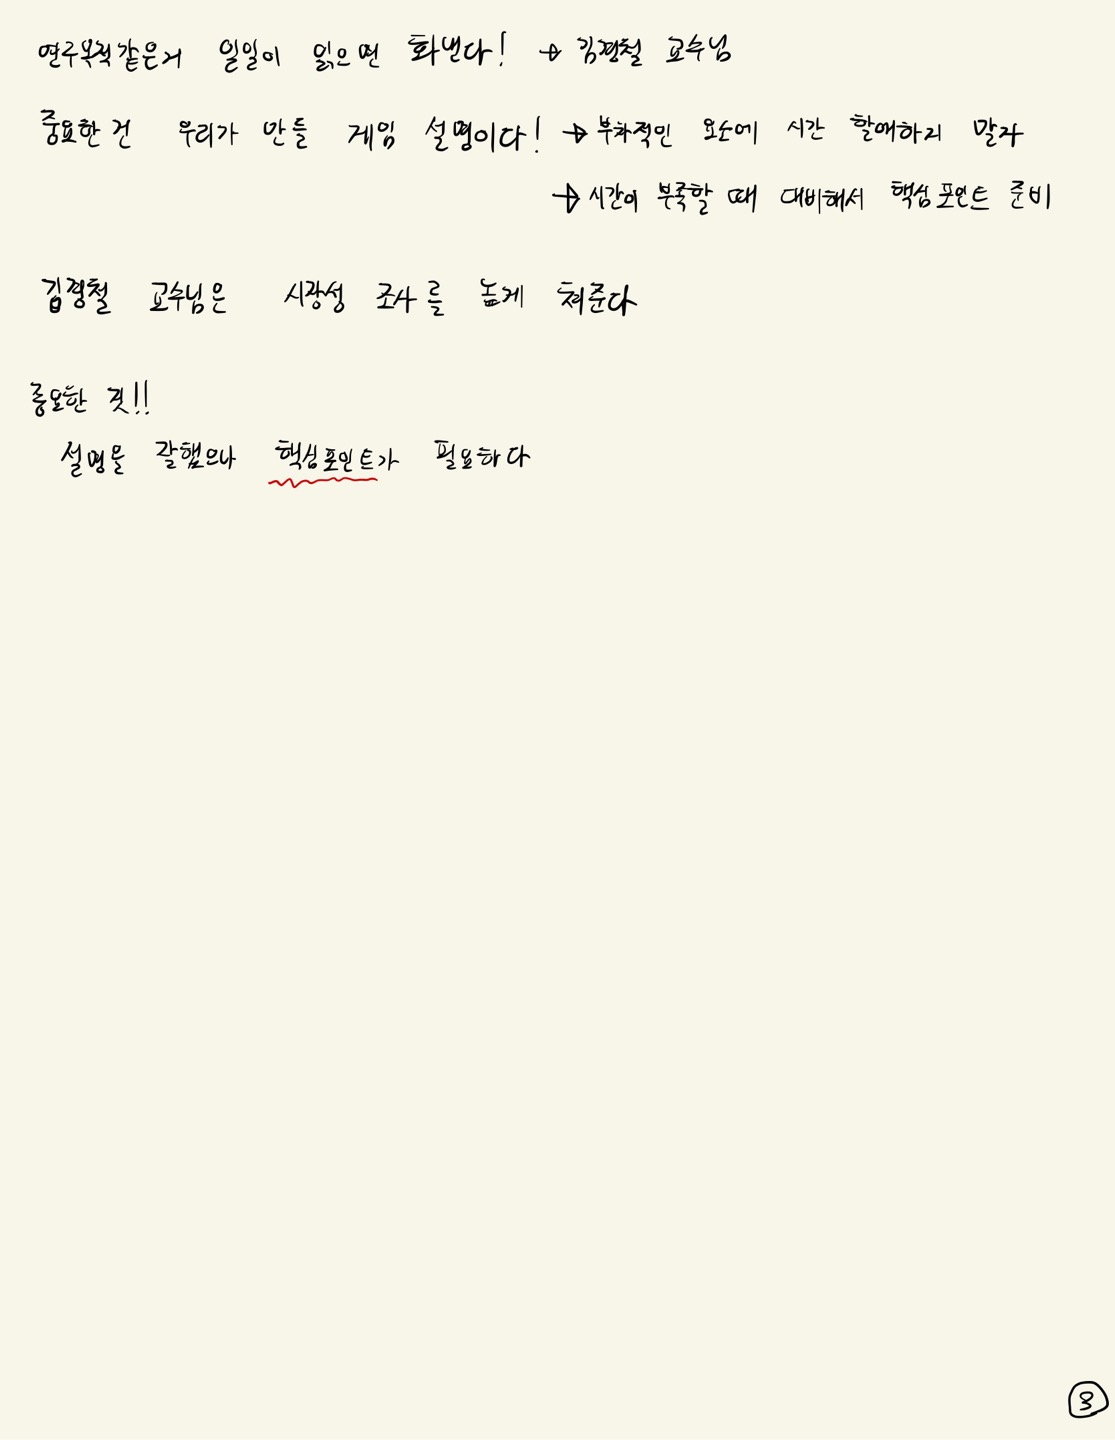 연구목적같은거 일일이 읽으면 화낸다! → 김경철 교수님
중요한 건 우리가 만들 게임 설명이다! → 부차적인 요소에 시간 할애하지 말자
→ 시간이 부족할 때 대비해서 핵심포인트 준비
김경철 교수님은 시장성 조사를 높게 쳐준다
중요한 것!!
설명을 잘했으나 핵심포인트가 필요하다
3